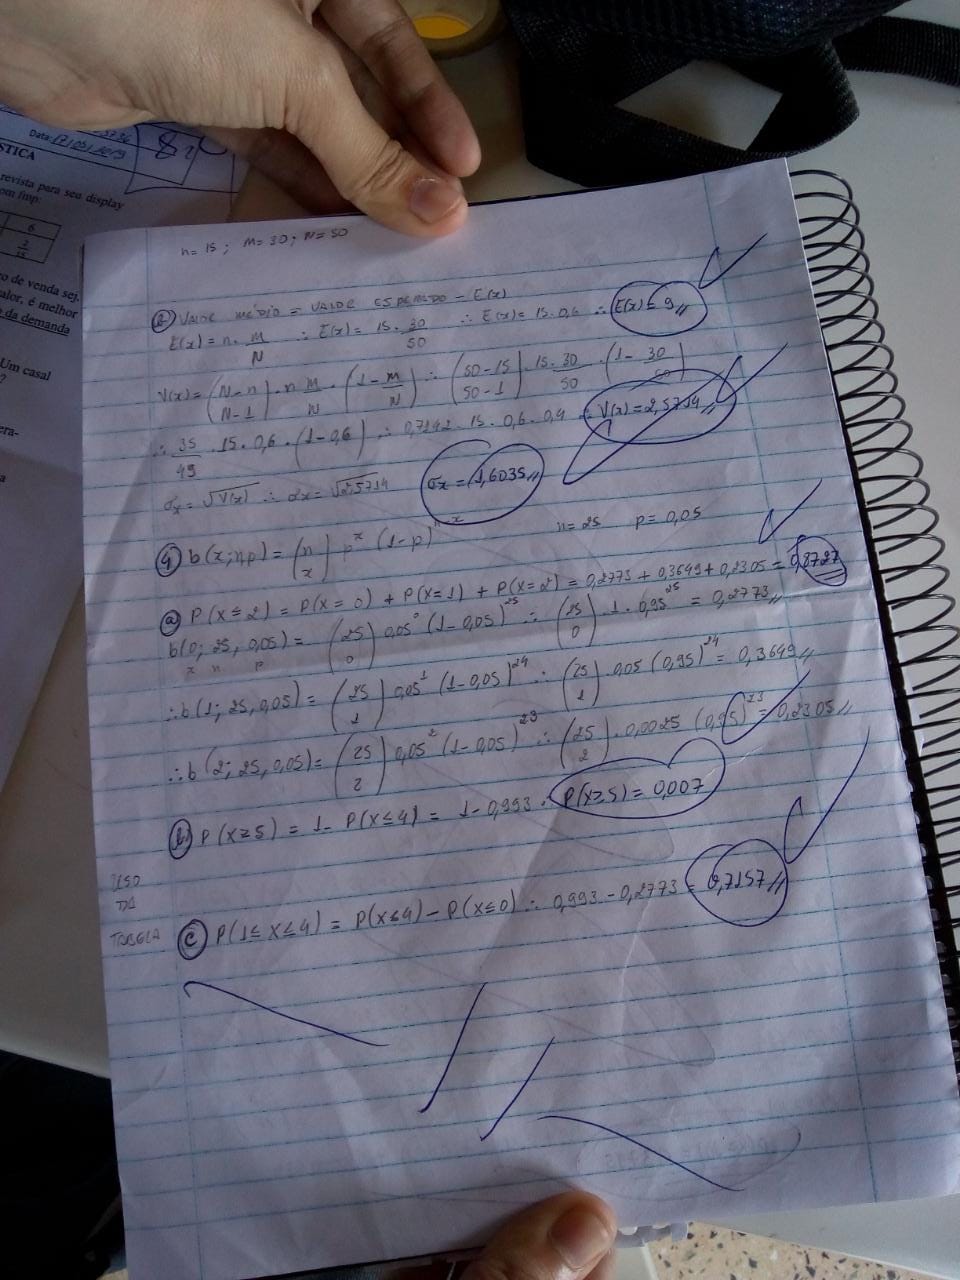 Data: 17/05/2019
8,0
STICA
revista para seu display
om fmp:
6
2
15
ço de venda sej
alor, é melhor
da demanda
Um casal
?
era-
a
n = 15 ; M = 30 ; N = 50
VALOR MÉDIO = VALOR ESPERADO - E(x)
E(x) = n . M/N ∴ E(x) = 15 . 30/50 ∴ E(x) = 15 . 0,6 ∴ E(x) = 9 //
V(x) = (N-n/N-1) . n M/N . (1 - M/N) ∴ (50-15/50-1) . 15 . 30/50 . (1 - 30/50)
∴ 35/49 . 15 . 0,6 . (1-0,6) ∴ 0,7142 . 15 . 0,6 . 0,4 ∴ V(x) = 2,5714 //
σx = √V(x) ∴ σx = √2,5714 σx = 1,6035 //
4) b(x; n p) = (n x) p^x (1-p)^n-x n = 25 p = 0,05
a) P(x ≤ 2) = P(x=0) + P(x=1) + P(x=2) = 0,2773 + 0,3649 + 0,2305 = 0,8727
b(0; 25, 0,05) = (25 0) 0,05^0 (1-0,05)^25 ∴ (25 0) 1 . 0,95^25 = 0,2773 //
x n p
∴ b(1; 25, 0,05) = (25 1) 0,05^1 (1-0,05)^24 ∴ (25 1) . 0,05 (0,95)^24 = 0,3649 //
∴ b(2; 25, 0,05) = (25 2) 0,05^2 (1-0,05)^23 ∴ (25 2) . 0,0025 (0,95)^23 = 0,2305 //
b) P(x≥5) = 1 - P(x≤4) = 1 - 0,993 ∴ P(x≥5) = 0,007
USO
DA
TABELA
c) P(1≤x≤4) = P(x≤4) - P(x≤0) ∴ 0,993 - 0,2773 = 0,7157 //